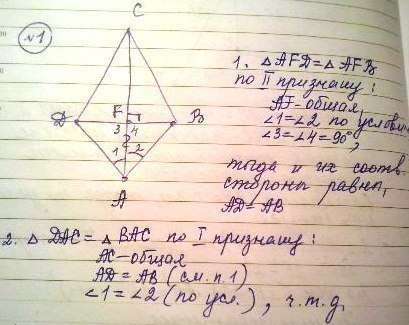 №1
C
F
D
B
3 4
1 2
A
1. △AFD = △AFB
по II признаку:
AF - общая,
∠1=∠2 по услови
∠3=∠4=90°,
тогда и их соотв.
стороны равны,
AD = AB
2. △DAC = △BAC по I признаку:
AC - общая
AD = AB (см. п.1)
∠1=∠2 (по усл.), ч.т.д.